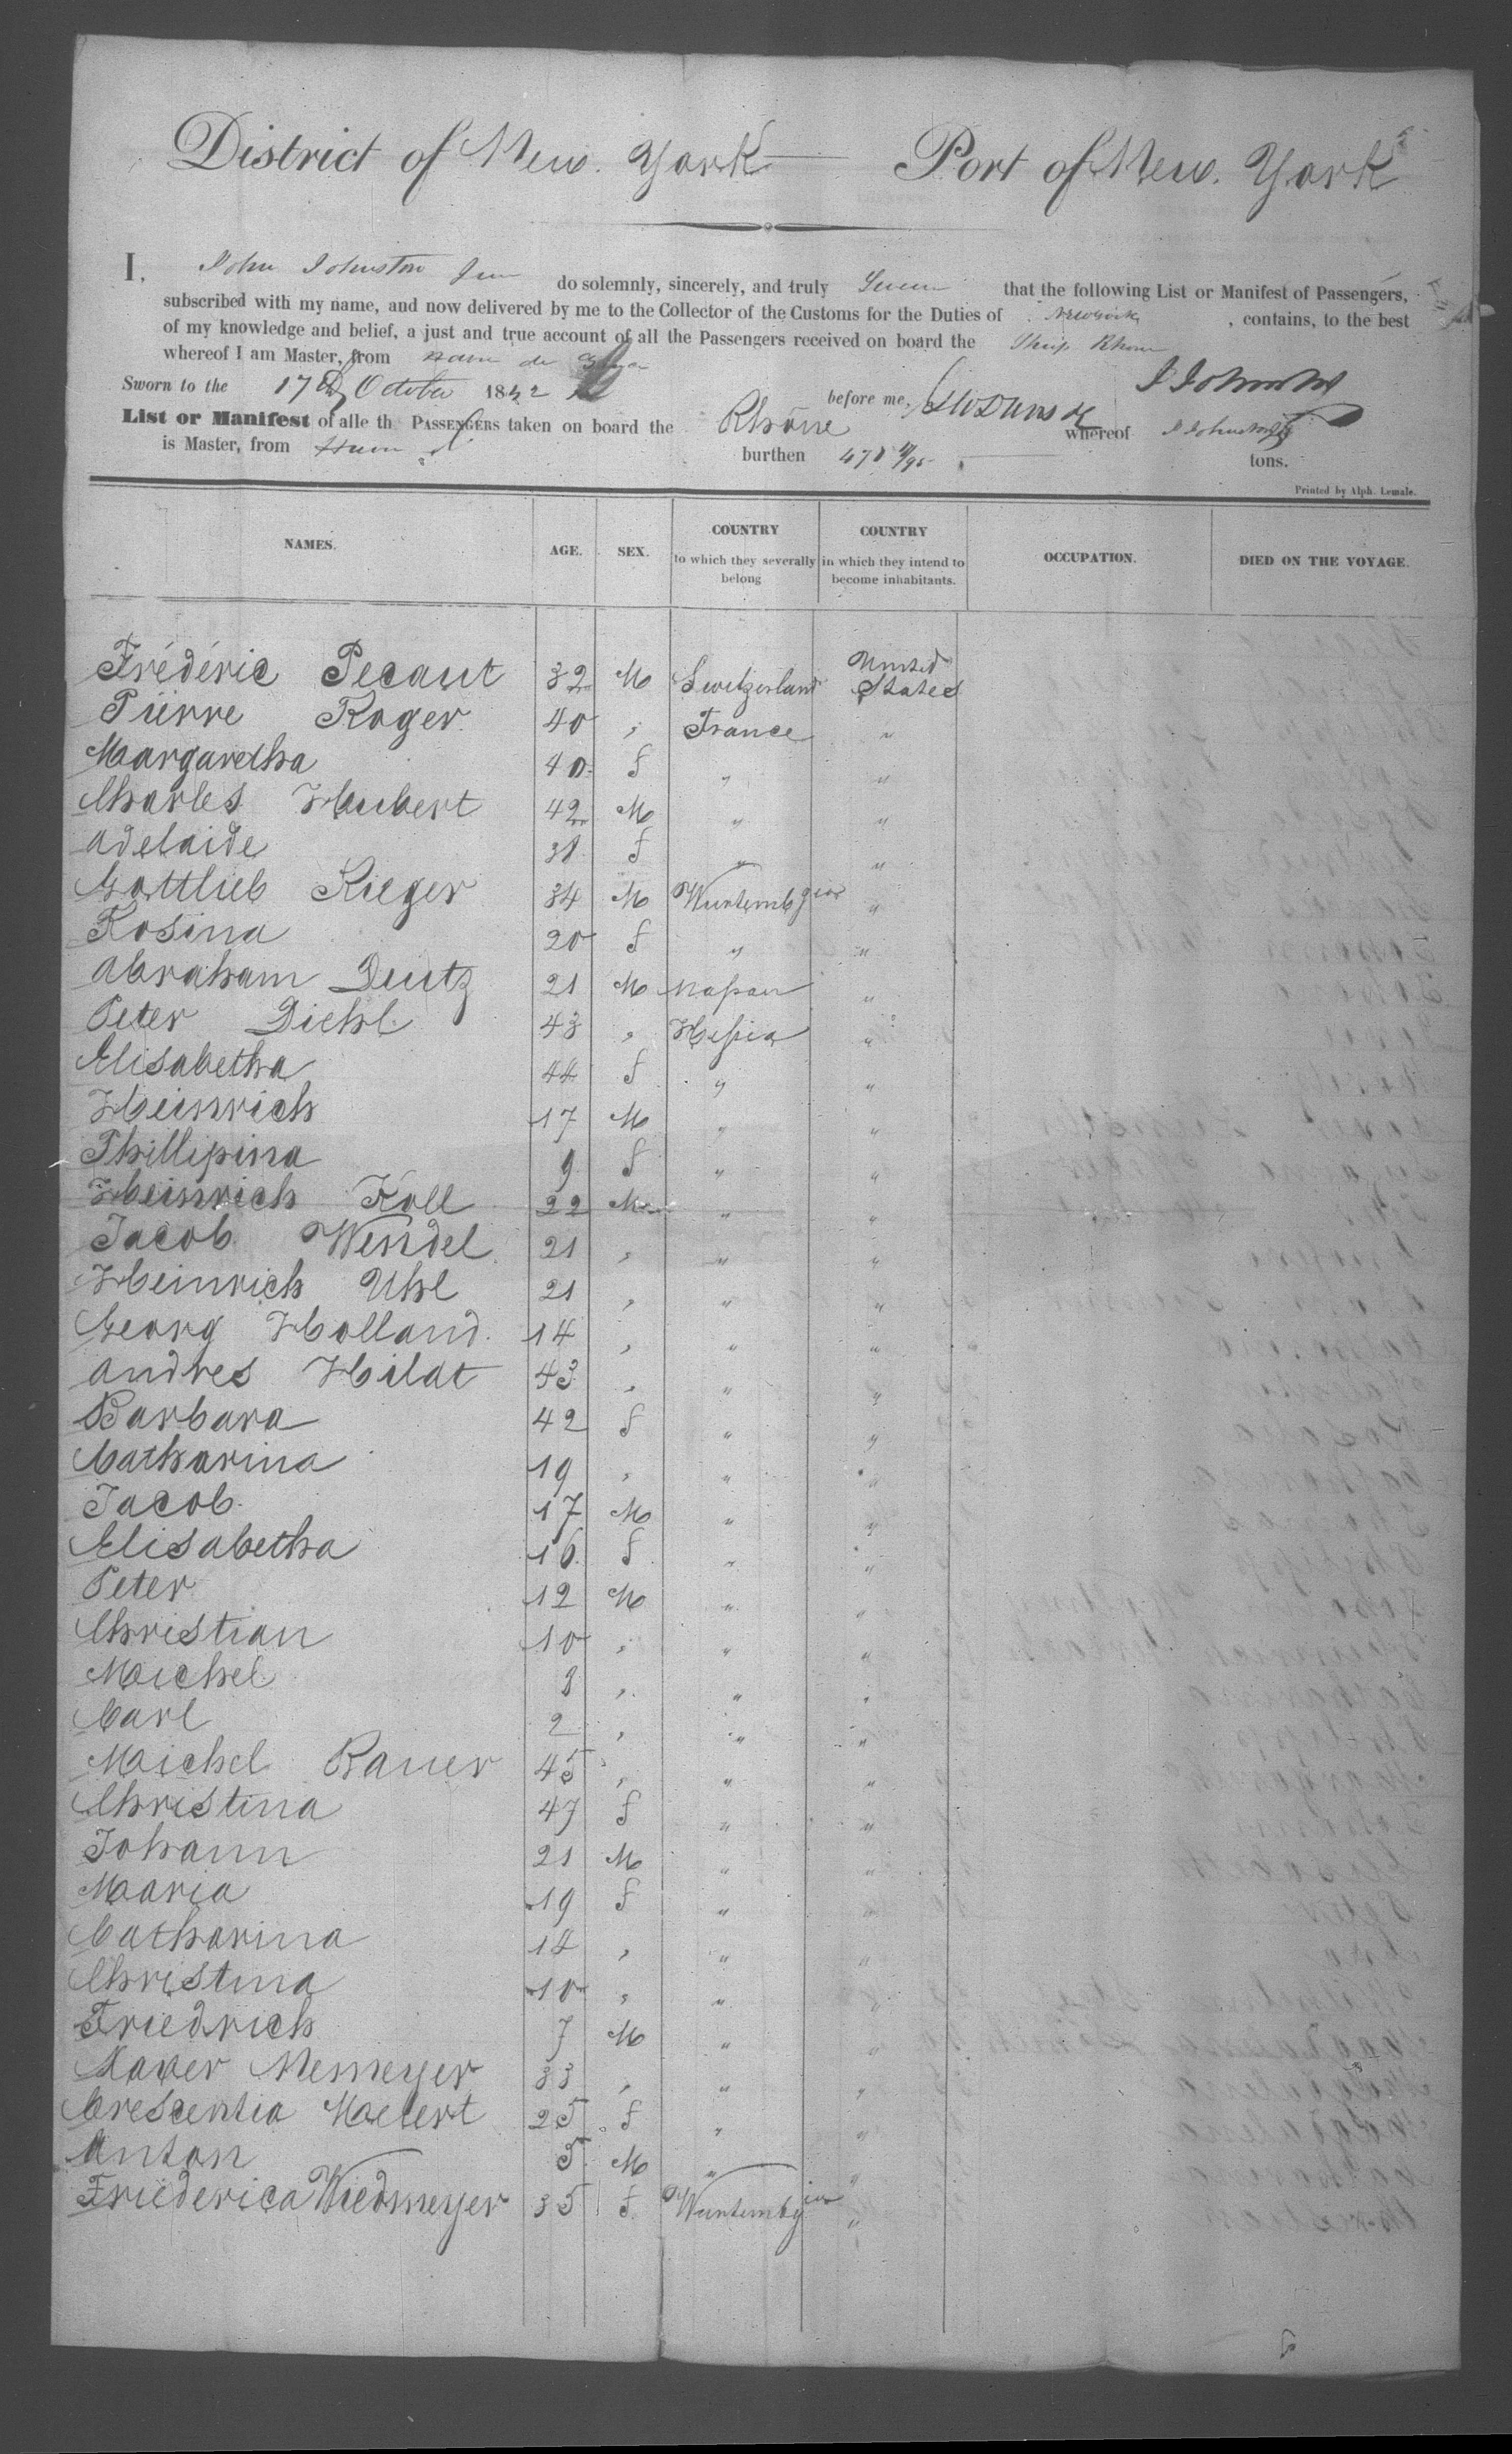 District of New York Port of New York
I, John Johnston Jun do solemnly, sincerely, and truly Swear that the following List or Manifest of Passengers,
subscribed with my name, and now delivered by me to the Collector of the Customs for the Duties of New York, contains, to the best
of my knowledge and belief, a just and true account of all the Passengers received on board the Ship Rhone
whereof I am Master, from Havre de
Sworn to the 17th October 1842 before me, J Johnston
List or Manifest of alle th Passengers taken on board the Rhône whereof J Johnston
is Master, from burthen 471 /95 tons.
Printed by Alph. Lemale.
NAMES. AGE. SEX. COUNTRY to which they severally belong COUNTRY in which they intend to become inhabitants. OCCUPATION. DIED ON THE VOYAGE.
Frédéric Pecaut 32 M Switzerland United States
Pierre Roger 40 , France "
Margaretha 40 f " "
Charles Hubert 42 M " "
Adelaide 31 f " "
Gottlieb Rieger 34 M Wurtembg "
Rosina 20 f " "
Abraham Deutz 21 M Naßau "
Peter Diehl 43 , Heßia "
Elisabetha 44 f " "
Heinrich 17 M " "
Phillipina 9 f " "
Heinrich Koll 22 M " "
Jacob Wendel 21 , " "
Heinrich Uhl 21 , " "
Georg Holland 14 , " "
Andres Hilat 43 , " "
Barbara 42 f " "
Catharina 19 , " "
Jacob 17 M " "
Elisabetha 16 f " "
Peter 12 M " "
Christian 10 , " "
Michel 8 , " "
Carl 2 , " "
Michel Bauer 45 , " "
Christina 47 f " "
Johann 21 M " "
Maria 19 f " "
Catharina 14 , " "
Christina 10 , " "
Friedrich 7 M " "
Xaver Nemeyer 33 , " "
Crescentia 25 f " "
Anton 5 M " "
Friederica Wiedmeyer 35 f Wurtembg "